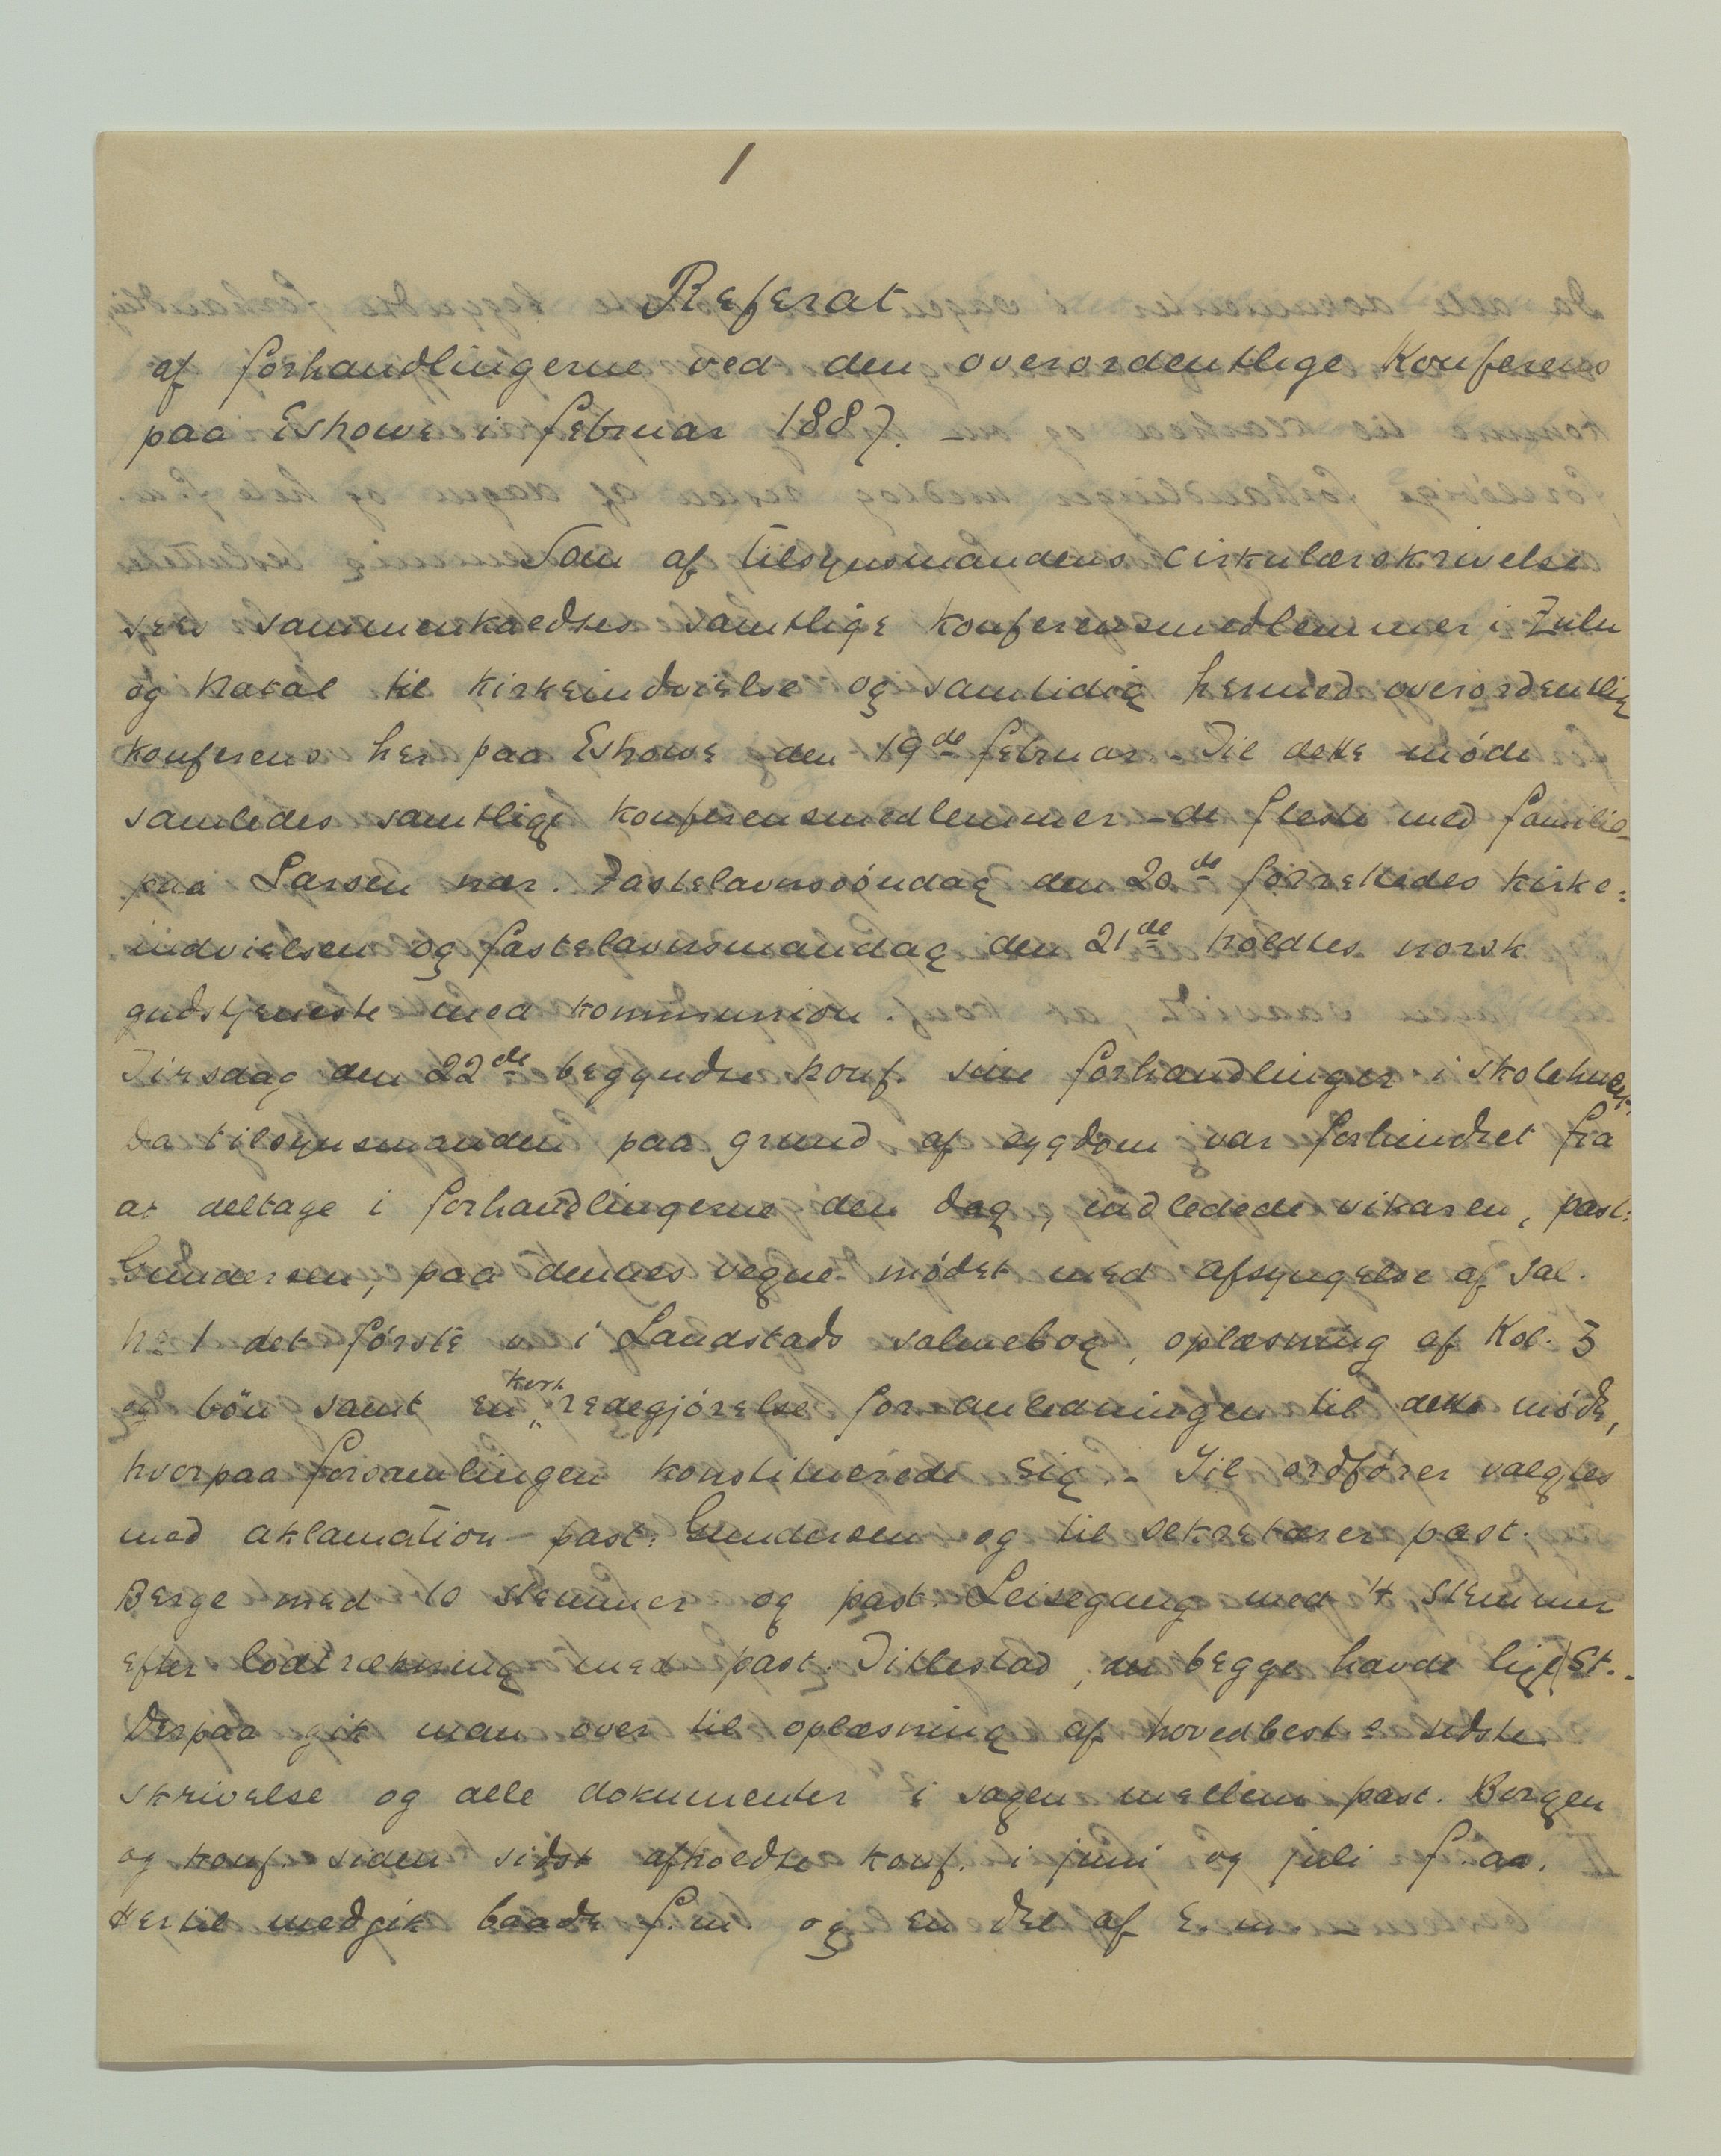 1
Referat
af forhandlingerne ved den overordentlige Konferens
paa Eshowe i februar 1887. –
Som af tilsynsmandens cirkulærskrivelse
sees sammenkaldtes samtlige konferensmedlemmer i Zulu
og Natal til kirkeindvielse og samtidig hermed overordentlig
konferens her paa Eshowe den 19de februar. Til dette møde
samledes samtlige konferensmedlemmer – de fleste med familie –
paa Larsen nær. Fastelavnssöndag den 20de forrettedes kirke:
indvielsen og fastelavnsmandag den 21de holdtes norsk
gudstjeneste med kommunion.
Tirsdag den 22de begyndte konf. sine forhandlinger i skolehuset.
Da tilsynsmanden paa grund af sygdom var forhindret fra
at deltage i forhandlingerne den dag, indledede vikaren, past:
Gundersen, paa dennes vegne mødet med afsyngelse af Sal.
No 1 det første v. i Landstads salmebog, oplæsning af Kol. 3
og bön samt en kort redegjørelse for anledningen til dette møde,
hvorpaa forsamlingen konstituerede sig. – Til ordfører valgtes
med aklamation past: Gundersen og til sekretærer past.
Berge med 10 stemmer og past. Leisegang med 4 stemmer
efter lodtrækning med past. Titlestad, da begge havde lige St. –
Derpaa gik man over til oplæsning af hovedbest:s sidste
skrivelse og alle dokumenter i sagen mellem past. Borgen
og konf. siden sidst afholdte konf. i juni og juli f. aa.
Hertil medgik baade f.m. og en del af e.m. –